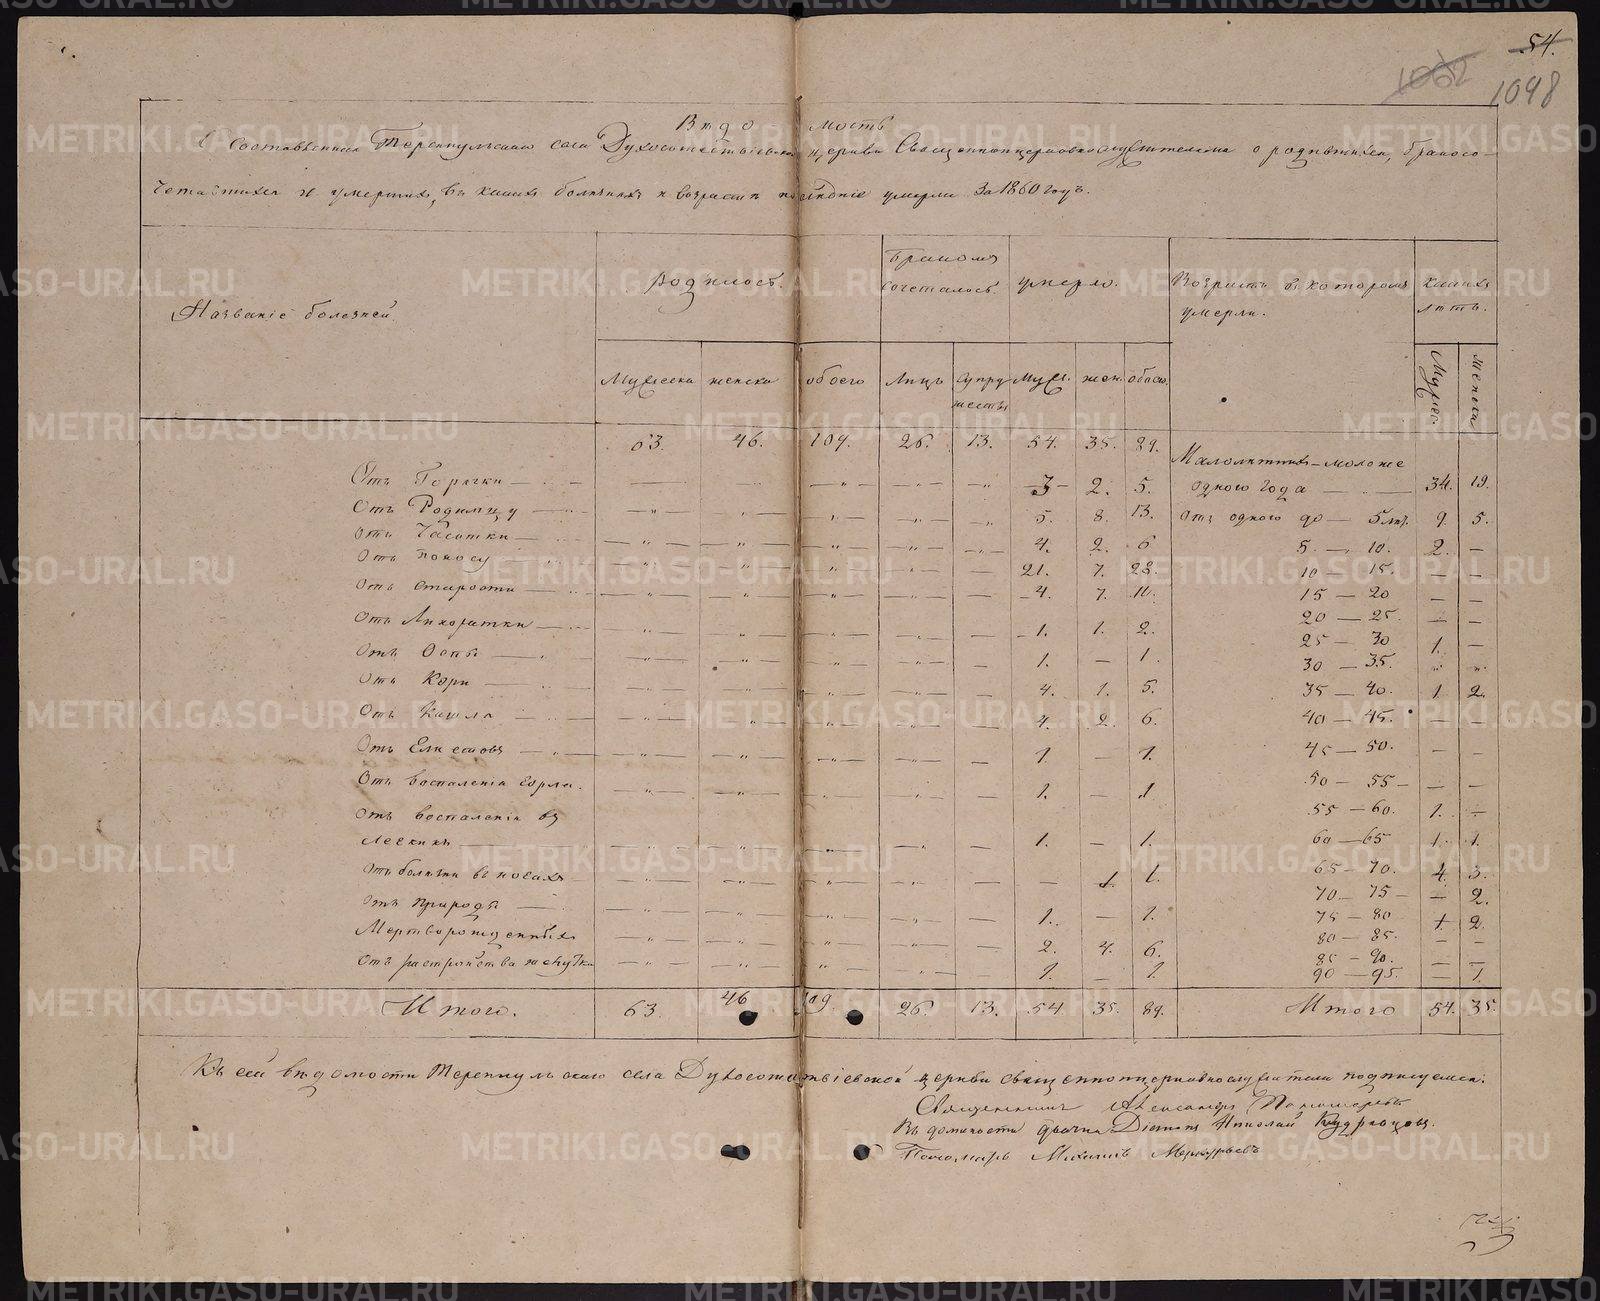 54.
1062 1098
Вѣдомость
Составленная Теренкульскаго села Духосошествіевской церкви Священноцерковнослужителями о родившихся, бракосо-
четавшихся и умершихъ, въ какихъ болѣзняхъ и возрастѣ послѣдніе умерли за 1860 годъ.
Названіе болезней. Родилось. Бракомъ сочеталось. умерло. Возрастъ въ которомъ умерли. какихъ лѣтъ.
Мужеска женска обоего Лицъ супружествъ Муж. жен. обоего. Мужес. женска
63. 46. 109. 26. 13. 54. 35. 89.
Малолѣтнихъ – моложе
Отъ Горячки — 3 — 2. 5. одного года — 34. 19.
Отъ Родимцу — 5. 8. 13. Отъ одного до — 5 лѣт. 9. 5.
Отъ Чахотки — 4. 2. 6 5 — 10. 2. —
Отъ поносу — 21. 7. 28. 10 — 15. — —
Отъ старости — 4. 7. 11. 15 — 20 — —
20 — 25. — —
Отъ Лихоратки — 1. 1. 2. 25 — 30 1. —
Отъ Оспы — 1. — 1. 30 — 35. " "
Отъ Кори — 4. 1. 5. 35 — 40. 1. 2.
Отъ Кашля — 4. 2. 6. 40 — 45. — —
Отъ — 1. — 1. 45 — 50. — —
Отъ воспаленія горла. 1. — 1 50 — 55 — — —
Отъ воспаленія въ 55 — 60. 1. —
легкихъ 1. — 1. 60 — 65 1. 1.
Отъ болѣзни въ ногахъ — 1. 1. 65 — 70. 4. 3.
70 — 75 — — 2.
Отъ природы — 1. — 1. 75 — 80 1. 2.
Мертворожденныхъ 2. 4. 6. 80 — 85. — —
85 — 90. — —
Отъ растройства желутка 1. — 1. 90 — 95. — 1.
Итого. 63. 46 109. 26. 13. 54. 35. 89. Итого 54. 35.
Къ сей вѣдомости Теренкульскаго села Духосошествіевской церкви священноцерковнослужители подписуемся:
Священникъ Александръ Пономаревъ
Въ должности дьячка Діаконъ Николай Кудрявцовъ.
Пономарь Михаилъ Меркурьевъ
METRIKI.GASO-URAL.RU